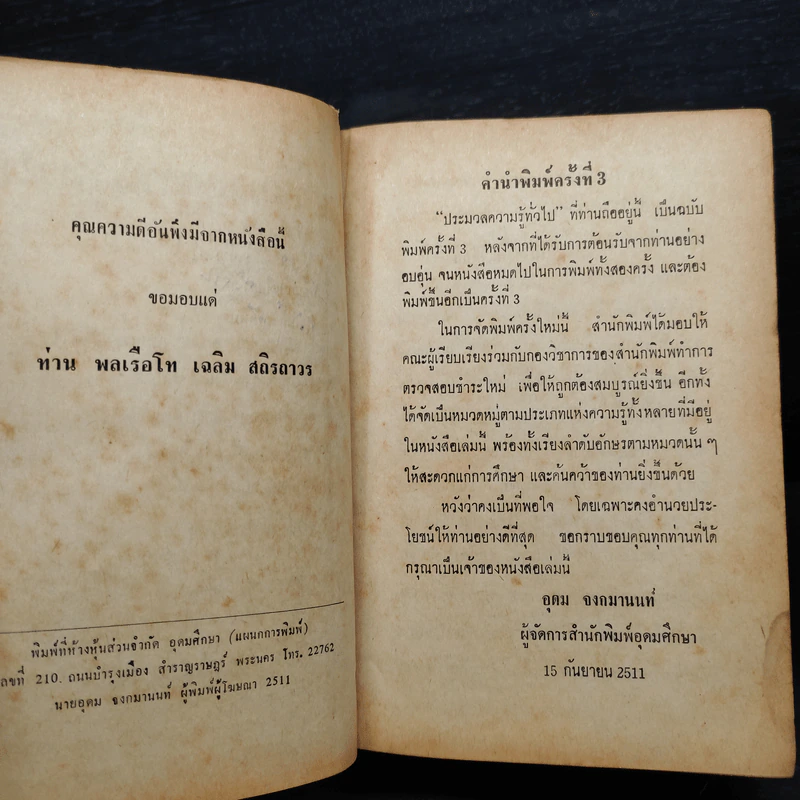 คุณความดีอันพึงมีจากหนังสือนี้
ขอมอบแด่
ท่าน พลเรือโท เฉลิม สถิรถาวร
พิมพ์ที่ห้างหุ้นส่วนจำกัด อุดมศึกษา (แผนกการพิมพ์)
เลขที่ 210. ถนนบำรุงเมือง สำราญราษฎร์ พระนคร โทร. 22762
นายอุดม จงกมานนท์ ผู้พิมพ์ผู้โฆษณา 2511
คำนำพิมพ์ครั้งที่ 3
“ประมวลความรู้ทั่วไป” ที่ท่านถืออยู่นี้ เป็นฉบับ
พิมพ์ครั้งที่ 3 หลังจากที่ได้รับการต้อนรับจากท่านอย่าง
อบอุ่น จนหนังสือหมดไปในการพิมพ์ทั้งสองครั้ง และต้อง
พิมพ์ขึ้นอีกเป็นครั้งที่ 3
ในการจัดพิมพ์ครั้งใหม่นี้ สำนักพิมพ์ได้มอบให้
คณะผู้เรียบเรียงร่วมกับกองวิชาการของสำนักพิมพ์ทำการ
ตรวจสอบชำระใหม่ เพื่อให้ถูกต้องสมบูรณ์ยิ่งขึ้น อีกทั้ง
ได้จัดเป็นหมวดหมู่ตามประเภทแห่งความรู้ทั้งหลายที่มีอยู่
ในหนังสือเล่มนี้ พร้องทั้งเรียงลำดับอักษรตามหมวดนั้น ๆ
ให้สะดวกแก่การศึกษา และค้นคว้าของท่านยิ่งขึ้นด้วย
หวังว่าคงเป็นที่พอใจ โดยเฉพาะคงอำนวยประ-
โยชน์ให้ท่านอย่างดีที่สุด ขอกราบขอบคุณทุกท่านที่ได้
กรุณาเป็นเจ้าของหนังสือเล่มนี้
อุดม จงกมานนท์
ผู้จัดการสำนักพิมพ์อุดมศึกษา
15 กันยายน 2511